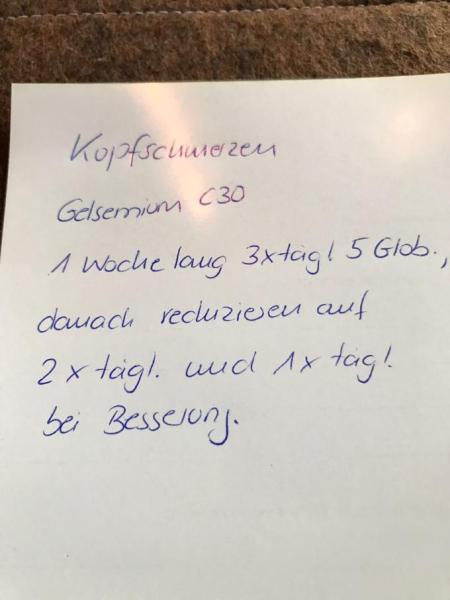 Kopfschmerzen
Gelsemium C30
1 Woche lang 3x tägl 5 Glob.,
danach reduzieren auf
2 x tägl. und 1x tägl.
bei Besserung.